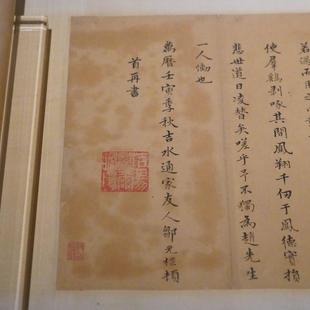 使羣鷄剥啄其間鳳翔千仞于鳳德損
悲世道日凌替矣嗟乎予不獨為趙先生
一人慟也
萬曆壬寅季秋吉水通家友人鄒元標頓
首再書